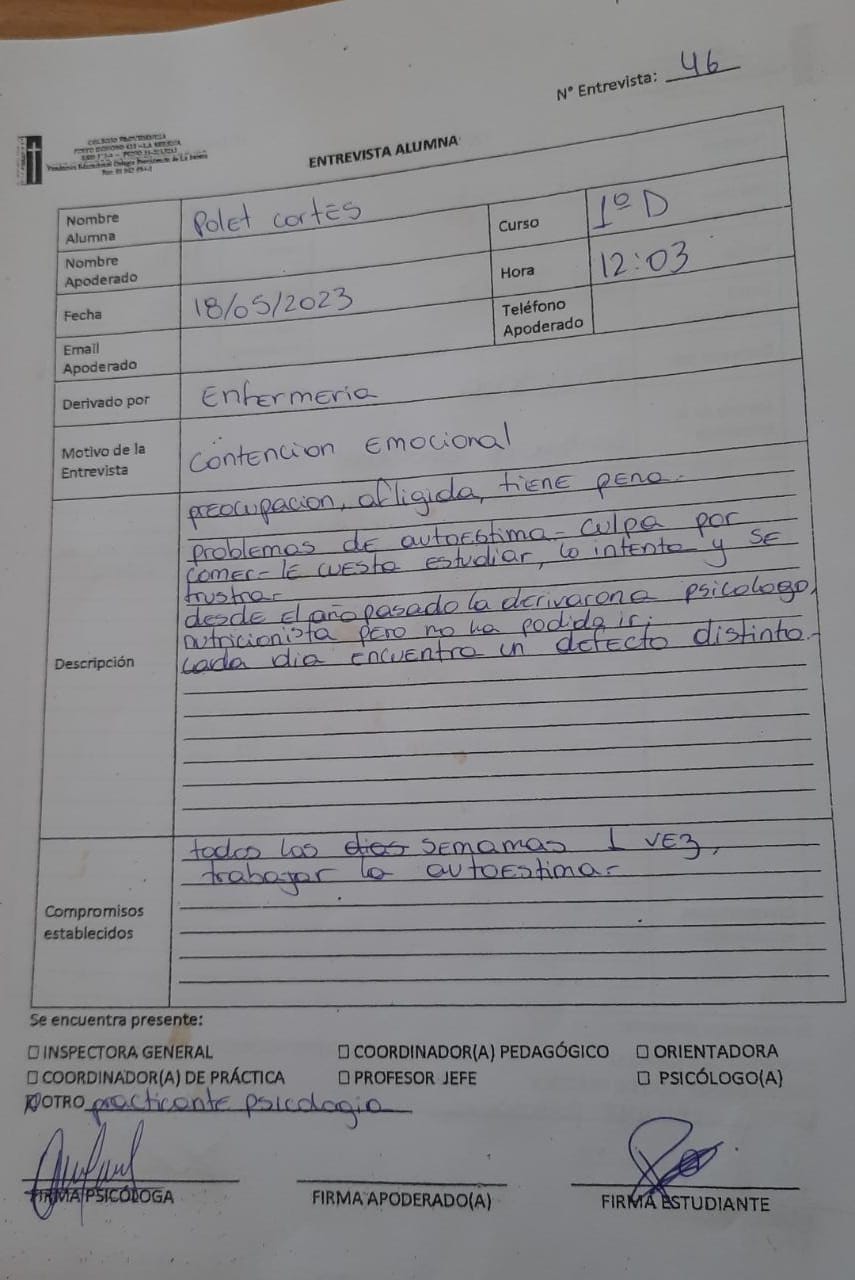 N° Entrevista: 46
COLEGIO PROVIDENCIA
ENTREVISTA ALUMNA
Nombre Alumna Polet cortés Curso 1º D
Nombre Apoderado Hora 12:03
Fecha 18/05/2023 Teléfono Apoderado
Email Apoderado
Derivado por Enfermeria
Motivo de la Entrevista Contencion Emocional
Descripción
preocupacion, afligida, tiene pena.
problemas de autoestima - culpa por
comer - le cuesta estudiar, lo intenta y se
frustra -
desde el año pasado la derivaron a psicologo,
nutricionista pero no ha podida ir.
cada dia encuentra un defecto distinto -
Compromisos establecidos
todas las dias semamas 1 vez,
trabajar la autoestima -
Se encuentra presente:
☐ INSPECTORA GENERAL ☐ COORDINADOR(A) PEDAGÓGICO ☐ ORIENTADORA
☐ COORDINADOR(A) DE PRÁCTICA ☐ PROFESOR JEFE ☐ PSICÓLOGO(A)
☒ OTRO practicante psicologia
FIRMA PSICÓLOGA FIRMA APODERADO(A) FIRMA ESTUDIANTE